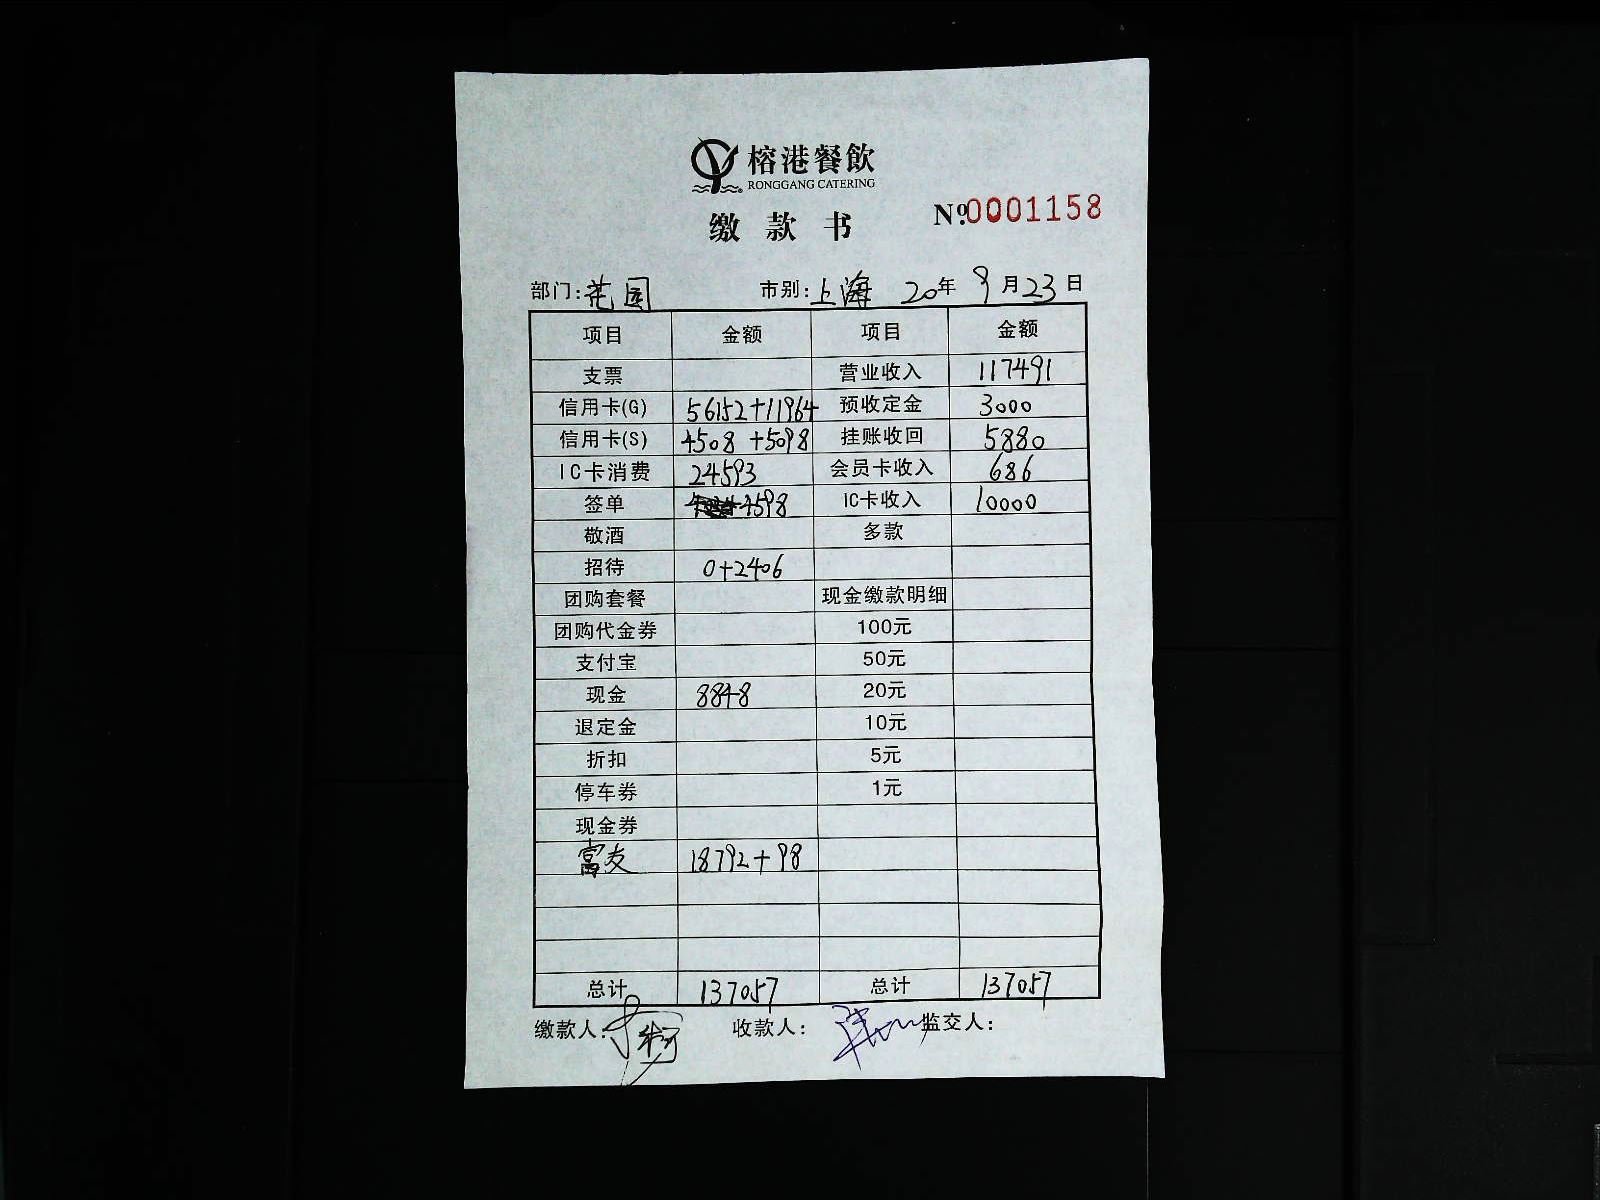 榕港餐飲
RONGGANG CATERING
缴款书 №0001158
部门:花园 市别:上海 20年9月23日
项目 金额 项目 金额
支票 营业收入 117491
信用卡(G) 56152+11964 预收定金 3000
信用卡(S) 4508+5098 挂账收回 5880
IC卡消费 24593 会员卡收入 686
签单 4598 IC卡收入 10000
敬酒 多款
招待 0+2406
团购套餐 现金缴款明细
团购代金券 100元
支付宝 50元
现金 8848 20元
退定金 10元
折扣 5元
停车券 1元
现金券
富友 18792+98
总计 137057 总计 137057
缴款人: 收款人: 监交人: